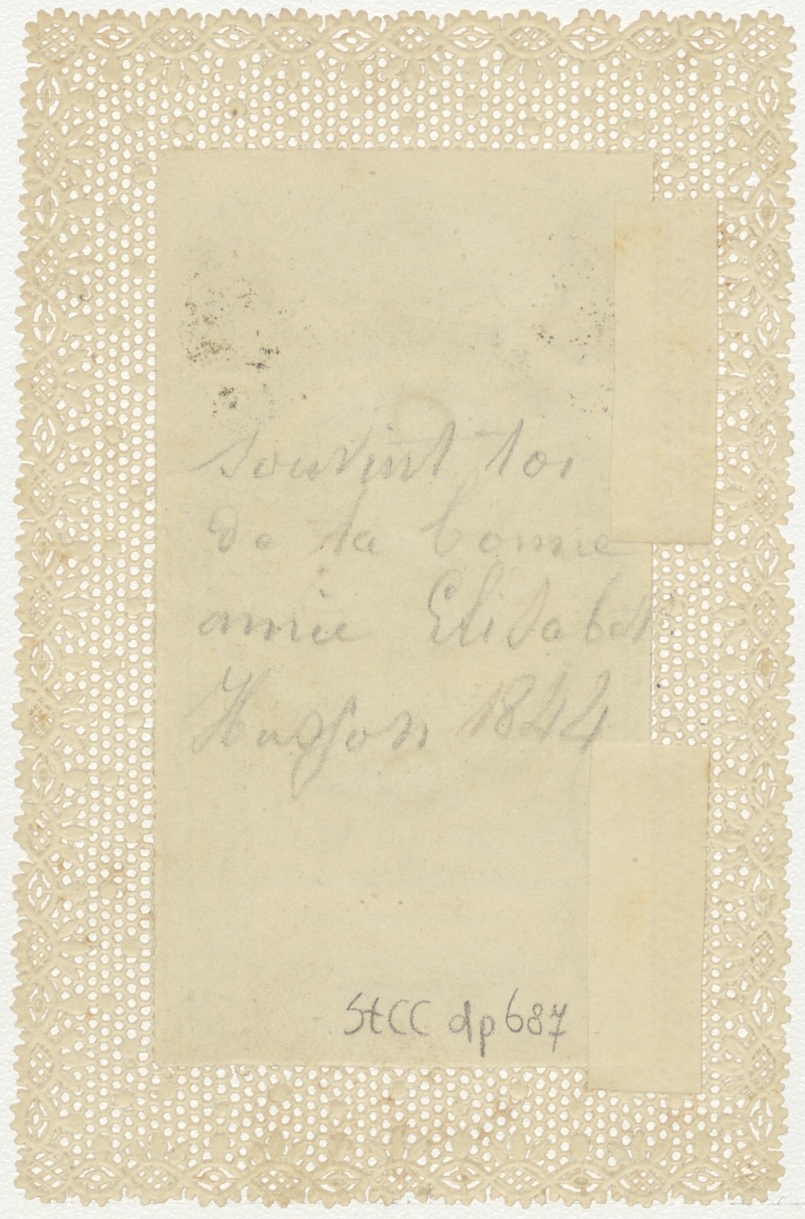 souvint toi
de ta bonne
amie Elisabet
1844
StCC dp687